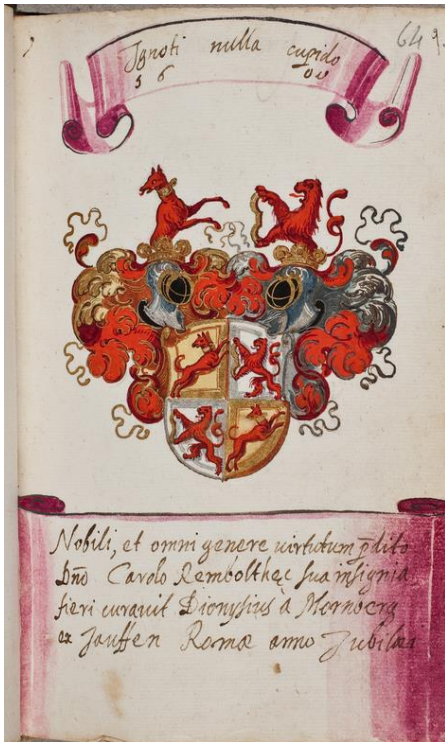 649.
Ignoti nulla cupido
56 00
Nobili, et omni genere uirtutum p̄dito
Dn̄o Carolo Rembolt hec sua insignia
fieri curauit Dionysius à Mornberg
ex Jauffen Romæ anno Jubilæi